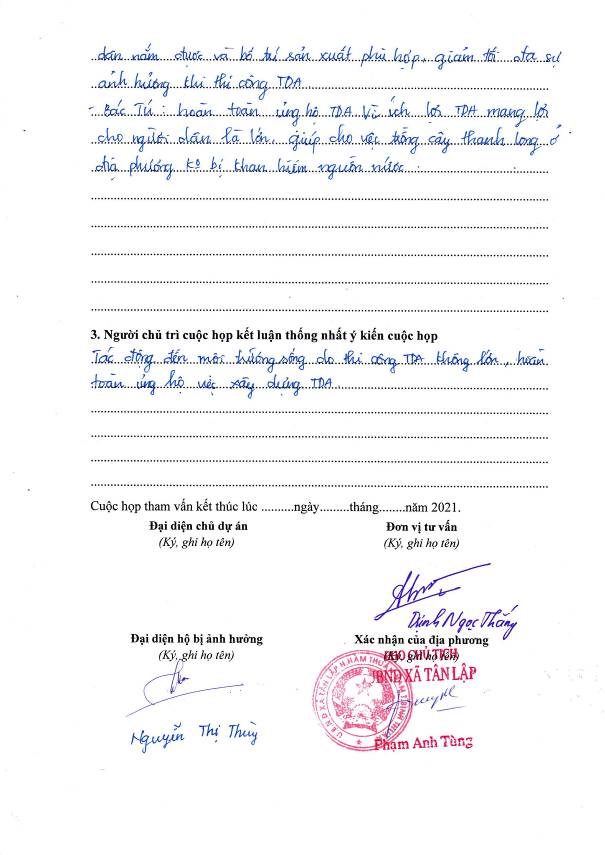 dân nắm được và bố trí sản xuất phù hợp, giảm tối đa sự
ảnh hưởng khi thi công TDA
- Bác Tú : hoàn toàn ủng hộ TDA vì ích lợi TDA mang lại
cho người dân là lớn, giúp cho việc trồng cây thanh long ở
địa phương ko bị khan hiếm nguồn nước.
3. Người chủ trì cuộc họp kết luận thống nhất ý kiến cuộc họp
Tác động đến môi trường sống do thi công TDA không lớn, hoàn
toàn ủng hộ việc xây dựng TDA.
Cuộc họp tham vấn kết thúc lúc ..........ngày.........tháng........năm 2021.
Đại diện chủ dự án
(Ký, ghi họ tên)
Đơn vị tư vấn
(Ký, ghi họ tên)
Đinh Ngọc Thắng
Đại diện hộ bị ảnh hưởng
(Ký, ghi họ tên)
Nguyễn Thị Thùy
Xác nhận của địa phương
(Ký, ghi họ tên)
CHỦ TỊCH
UBND XÃ TÂN LẬP
U.B.N.D XÃ TÂN LẬP H.HÀM THUẬN
Phạm Anh Tùng